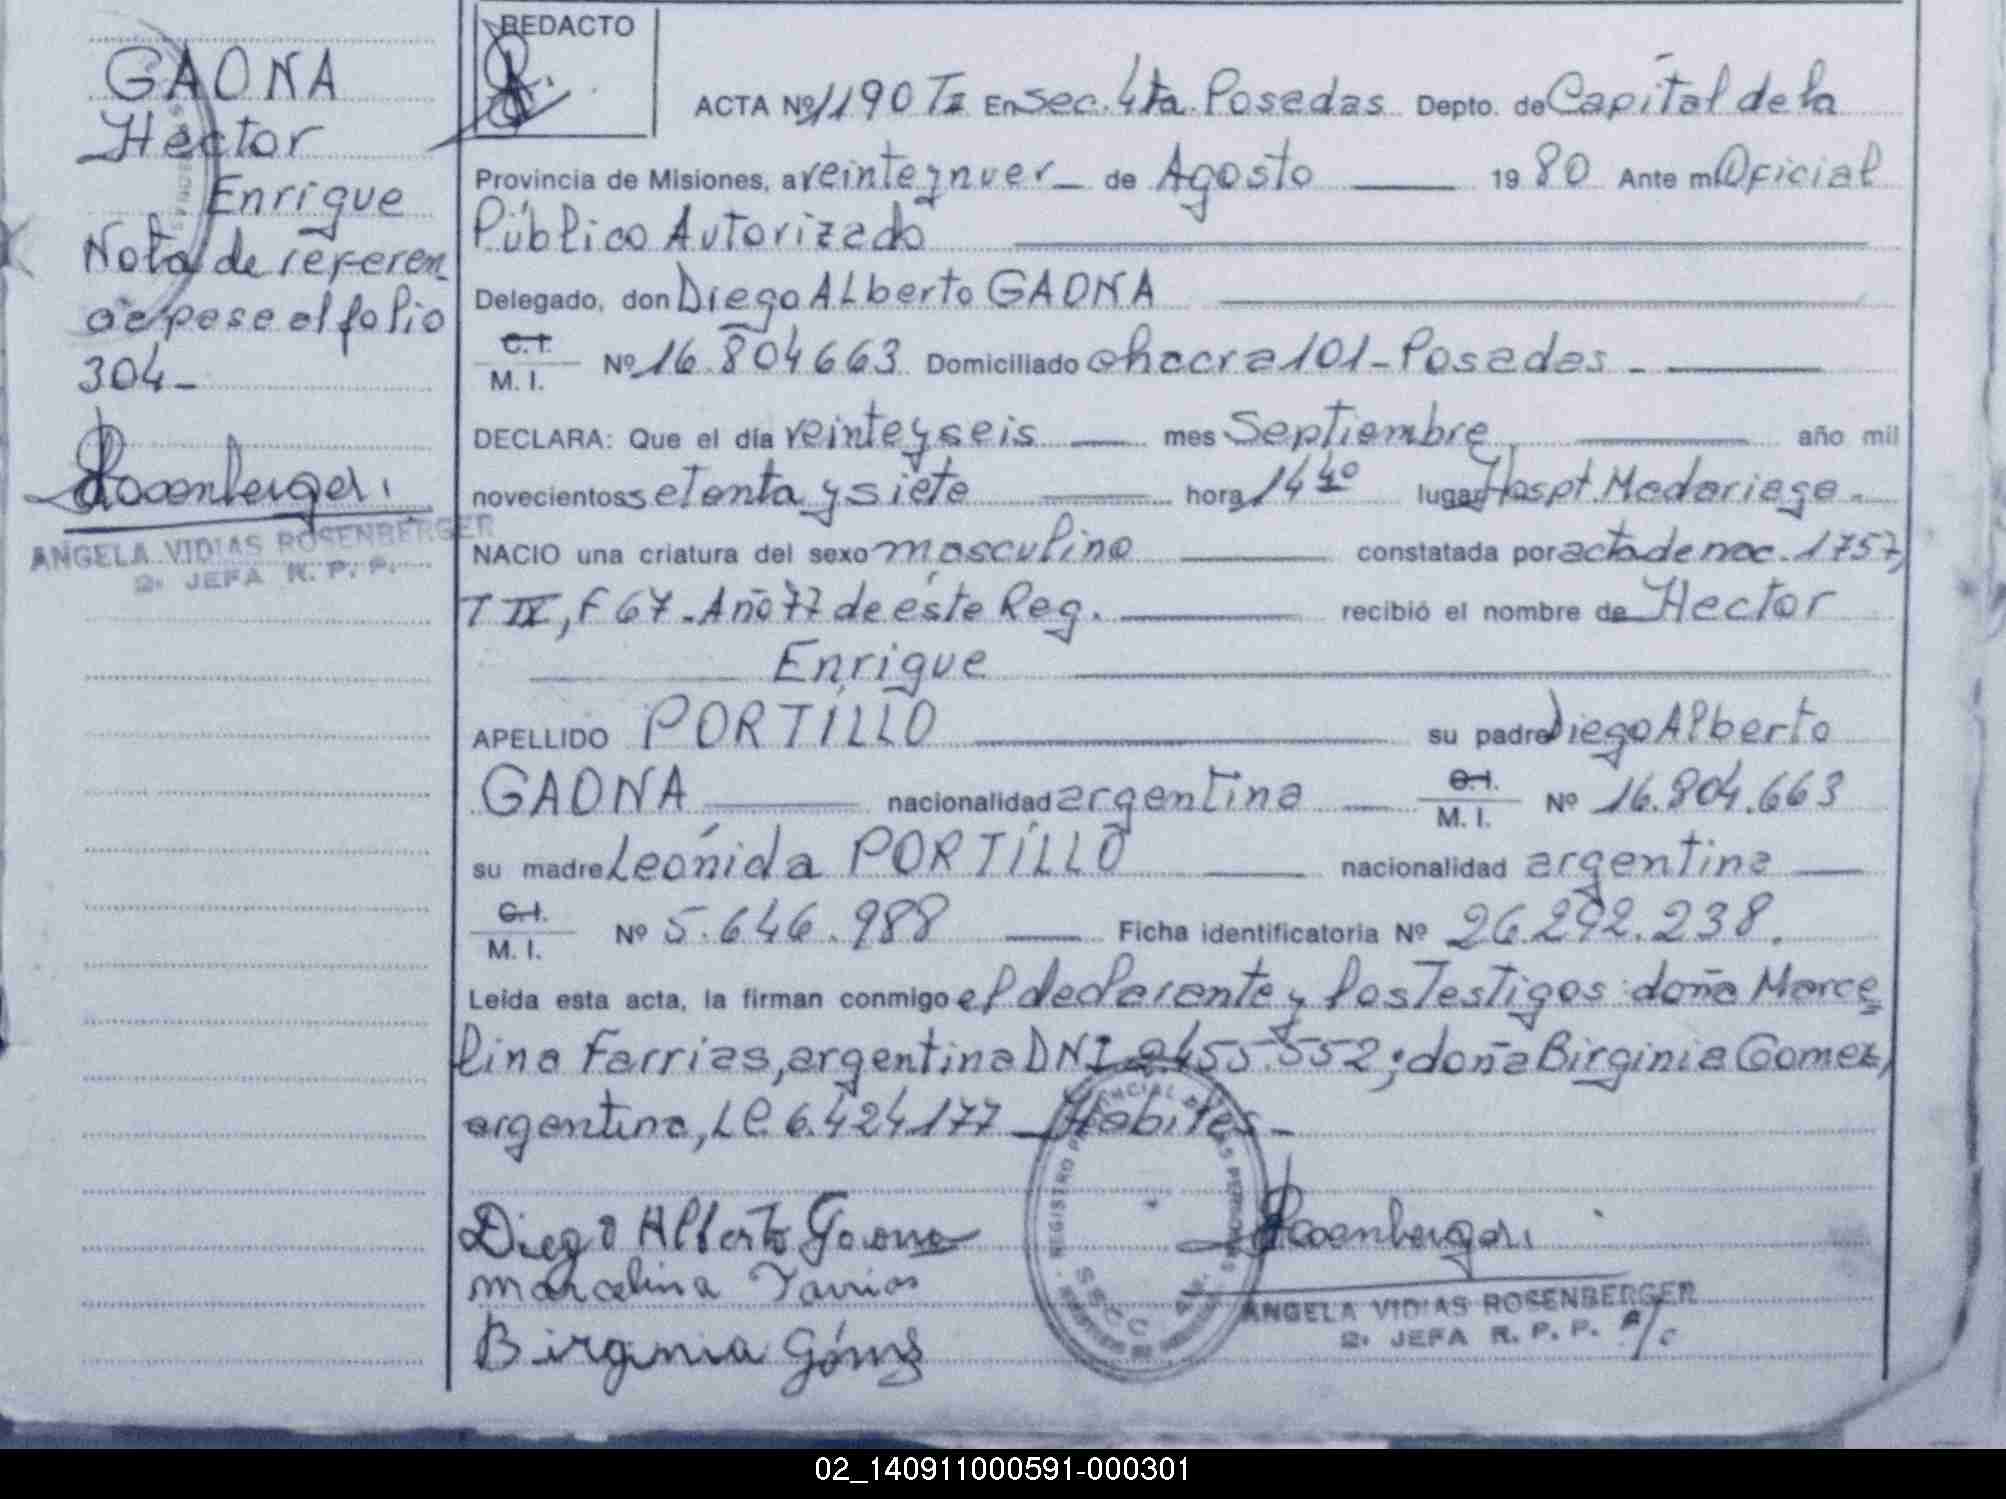 GAONA
Hector
Enrique
Nota de referen
cia pase al folio
304-
Rosenberger
ANGELA VIDIAS ROSENBERGER
2. JEFA R. P. P.
REDACTO
ACTA Nº 1190 En sec. 4ta. Posadas Depto. de Capital de la
Provincia de Misiones, a veinteynuev_ de Agosto 19 80 Ante mi Oficial
Público Autorizado
Delegado, don Diego Alberto GAONA
C.I.
M. I. Nº 16.804663 Domiciliado chacra 101-Posadas-
DECLARA: Que el día veinteyseis mes Septiembre año mil
novecientos setenta y siete hora 14 40 lugar Hospt. Madariaga.
NACIO una criatura del sexo masculino constatada por acta de nac. 1757,
T IV, F 67-Año 77 de éste Reg. recibió el nombre de Hector
Enrique
APELLIDO PORTILLO su padre Diego Alberto
GAONA nacionalidad argentina C.I.
M. I. Nº 16.804.663
su madre Leónida PORTILLO nacionalidad argentina
C.I.
M. I. Nº 5.646.988 Ficha identificatoria Nº 26.292.238.
Leída esta acta, la firman conmigo el declarante y los Testigos: doña Marce
lina Farrias, argentina DNI 2455.552; doña Birginia Gomez,
argentina, LC. 6.424.177 - Habiles-
Diego Alberto Gaona
Marcelina Farrias
Birginia Gómez
Rosenberger
ANGELA VIDIAS ROSENBERGER
2. JEFA R. P. P. A/C
02_140911000591-000301